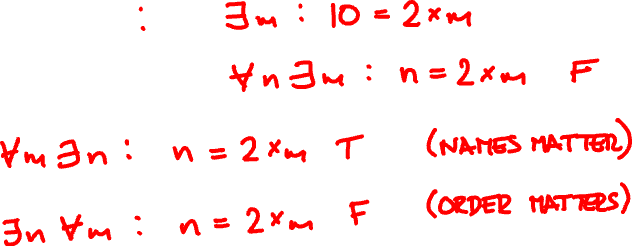 : ∃m : 10 = 2×m
∀n∃m : n = 2×m F
∀m∃n : n = 2×m T (NAMES MATTER)
∃n∀m : n = 2×m F (ORDER MATTERS)